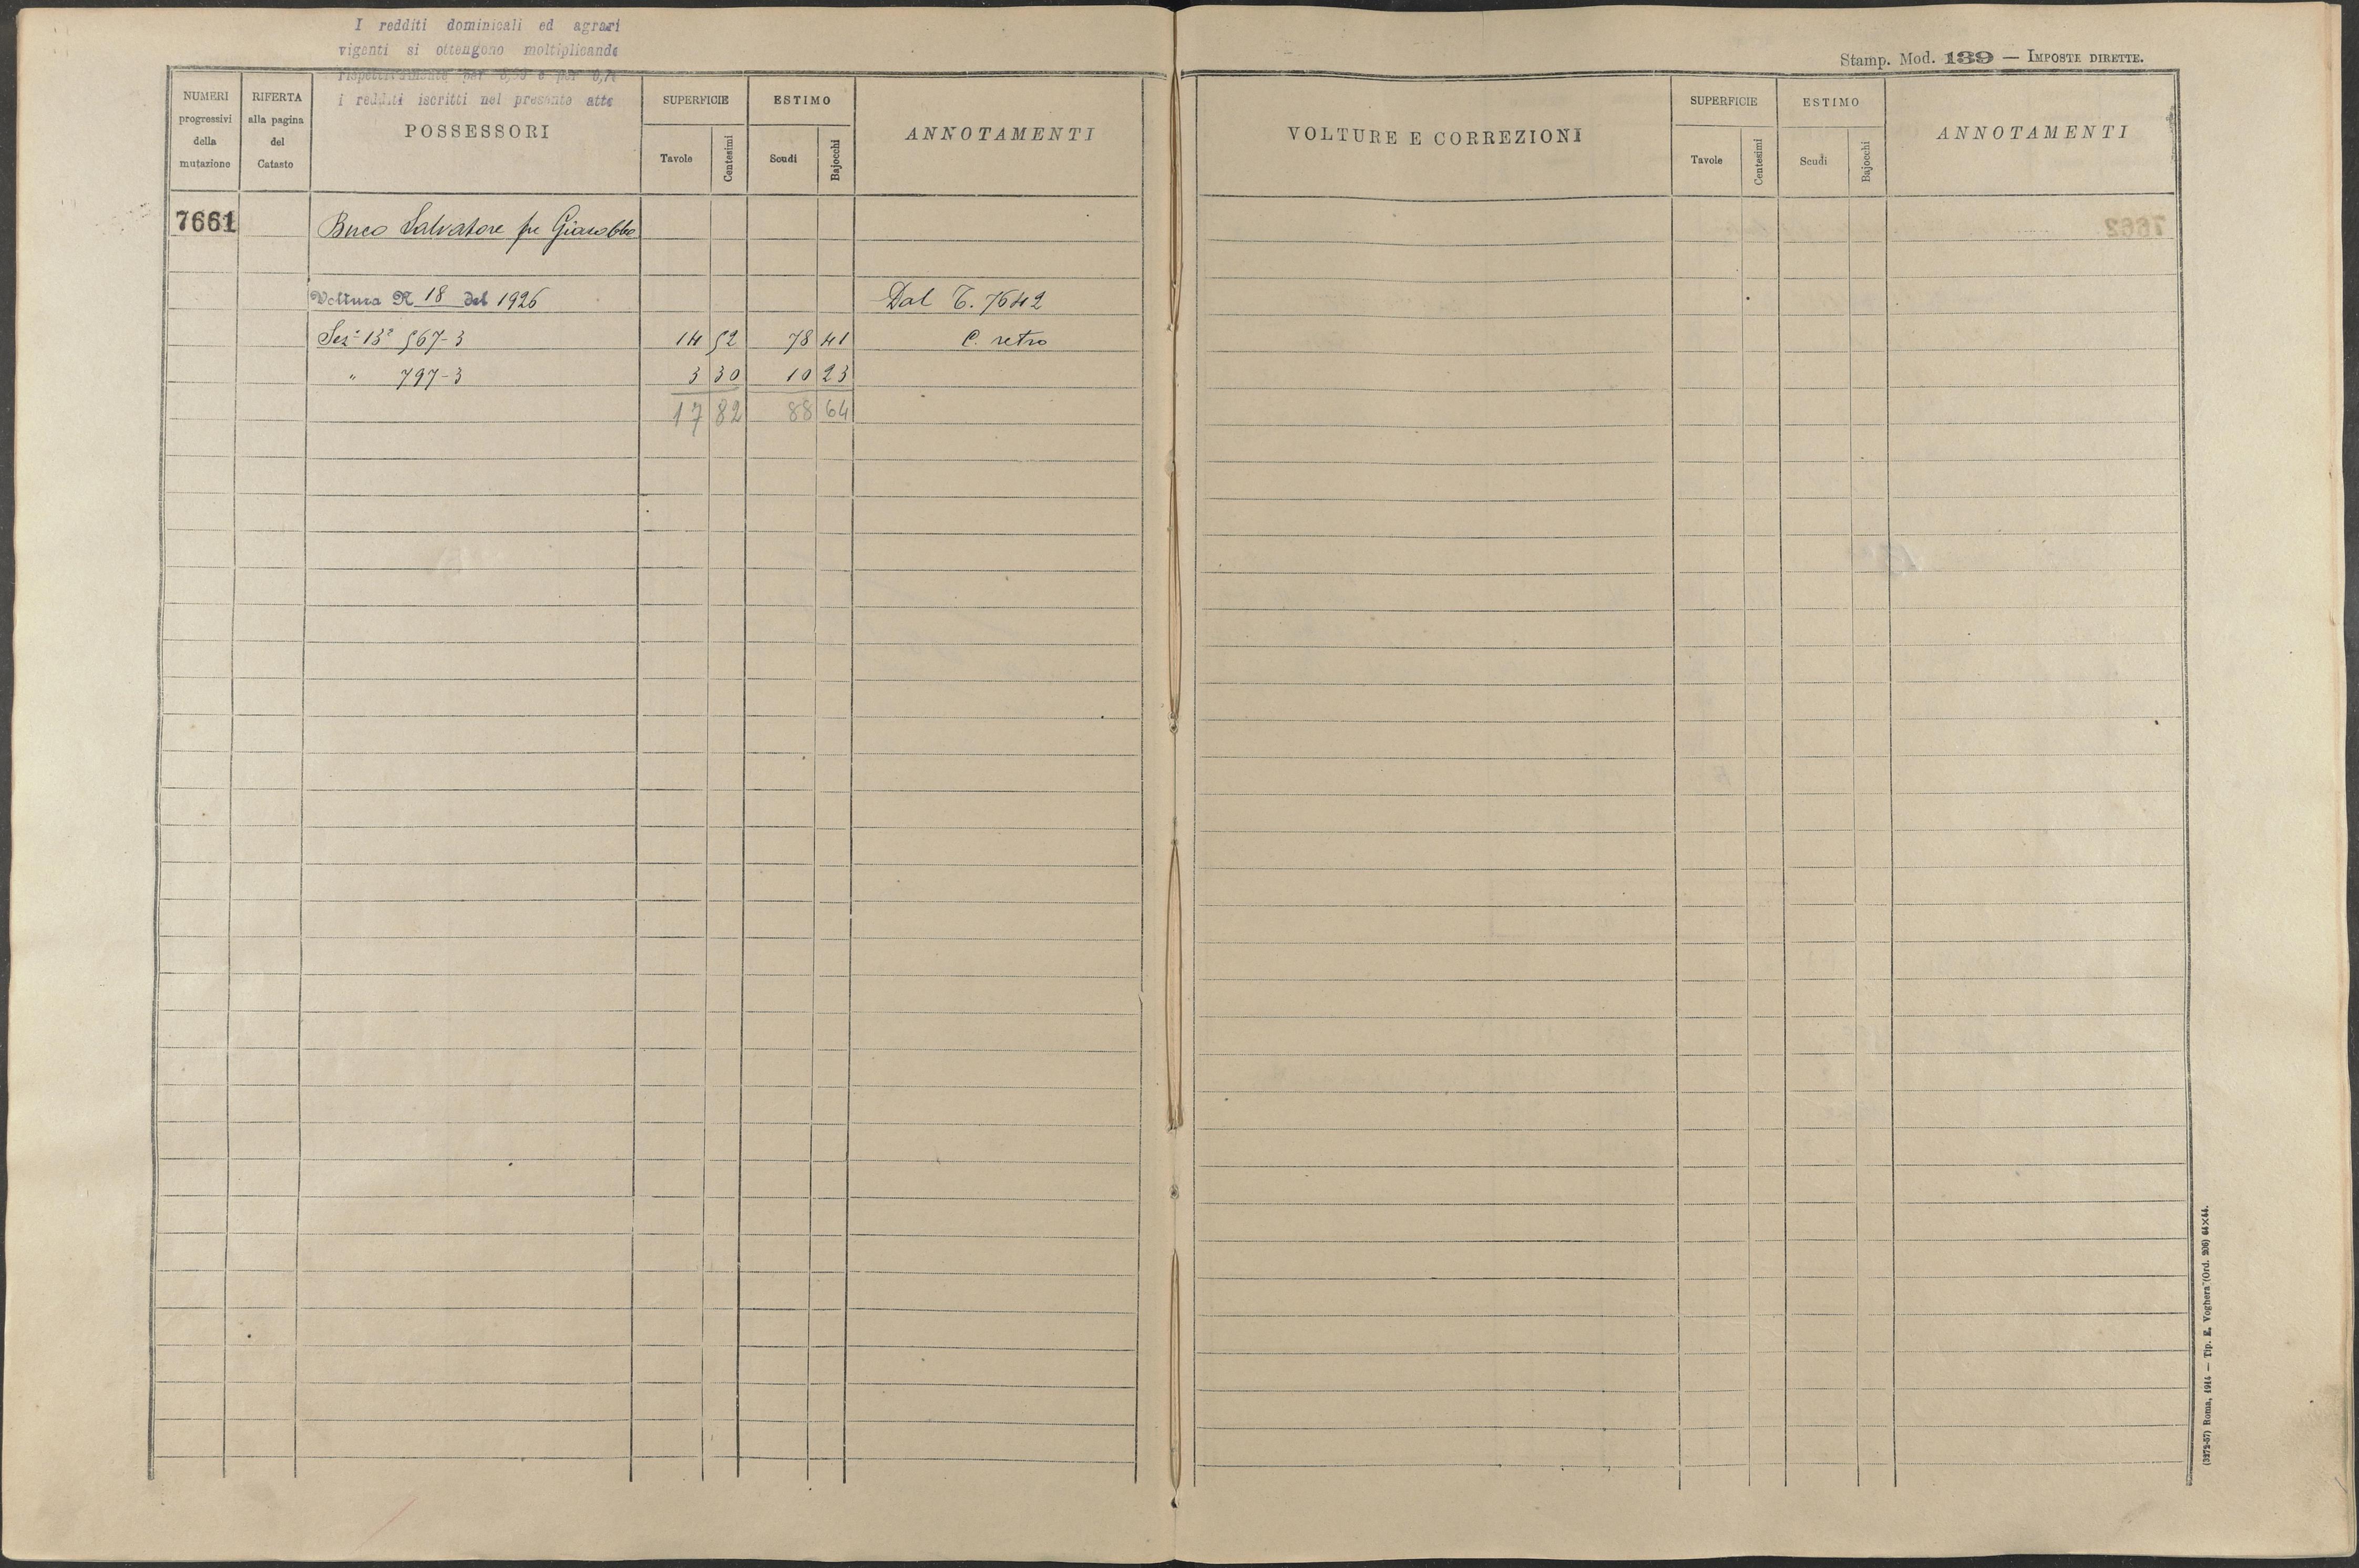 I redditi dominicali ed agrari
vigenti si ottengono moltiplicando
rispettivamente per e per
i redditi iscritti nel presente atto
Stamp. Mod. 139 — IMPOSTE DIRETTE.
NUMERI progressivi della mutazione
RIFERTA alla pagina del Catasto
POSSESSORI
SUPERFICIE
Tavole Centesimi
ESTIMO
Scudi Bajocchi
ANNOTAMENTI
VOLTURE E CORREZIONI
SUPERFICIE
Tavole Centesimi
ESTIMO
Scudi Bajocchi
ANNOTAMENTI
7661 Buco Salvatore fu Giacobbe
Voltura N 18 del 1926 Dal T. 7642
Sez. 13ª 567-3 14 52 78 41 C. retro
" 797-3 3 30 10 23
17 82 88 64
7662
(3272-57) Roma, 1914 — Tip. E. Voghera (Ord. 206) 64×44.